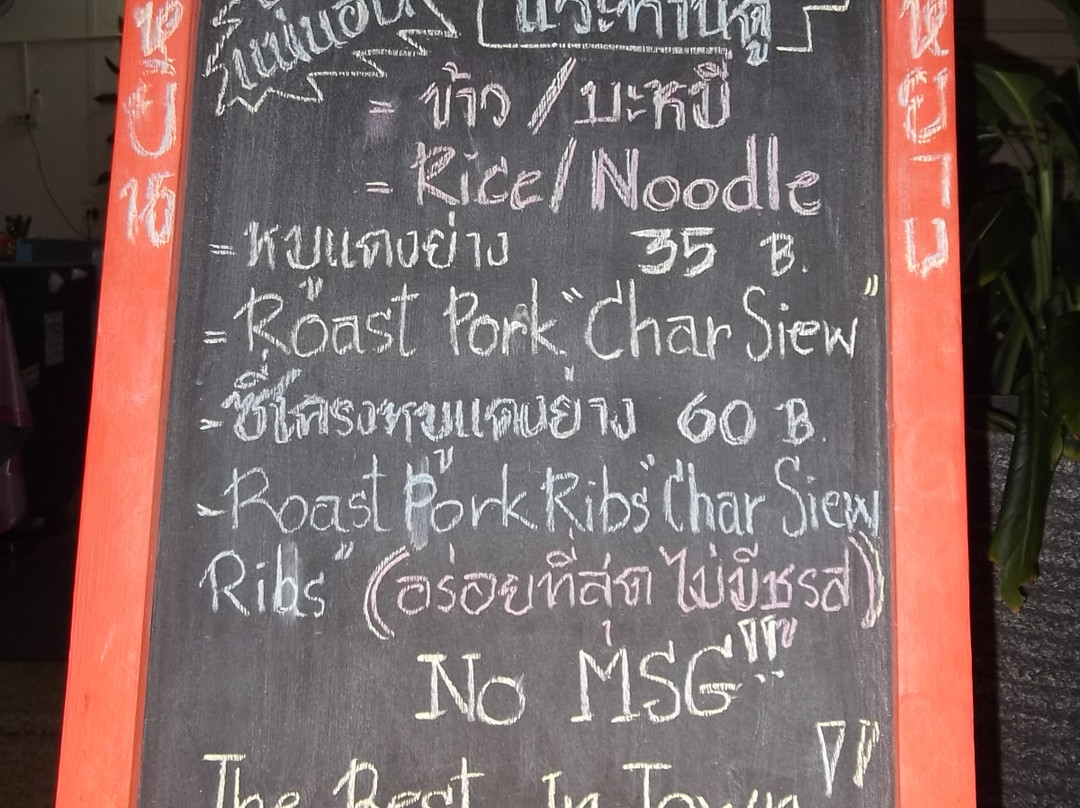 แน่นอน
แวะทานดู
= ข้าว / บะหมี่
= Rice / Noodle
= หมูแดงย่าง 35 B.
= Roast Pork "Char Siew"
- ซี่โครงหมูแดงย่าง 60 B.
- Roast Pork Ribs "Char Siew
Ribs" (อร่อยที่สุด ไม่มีชูรส)
No MSG!!!
The Best In Town!!